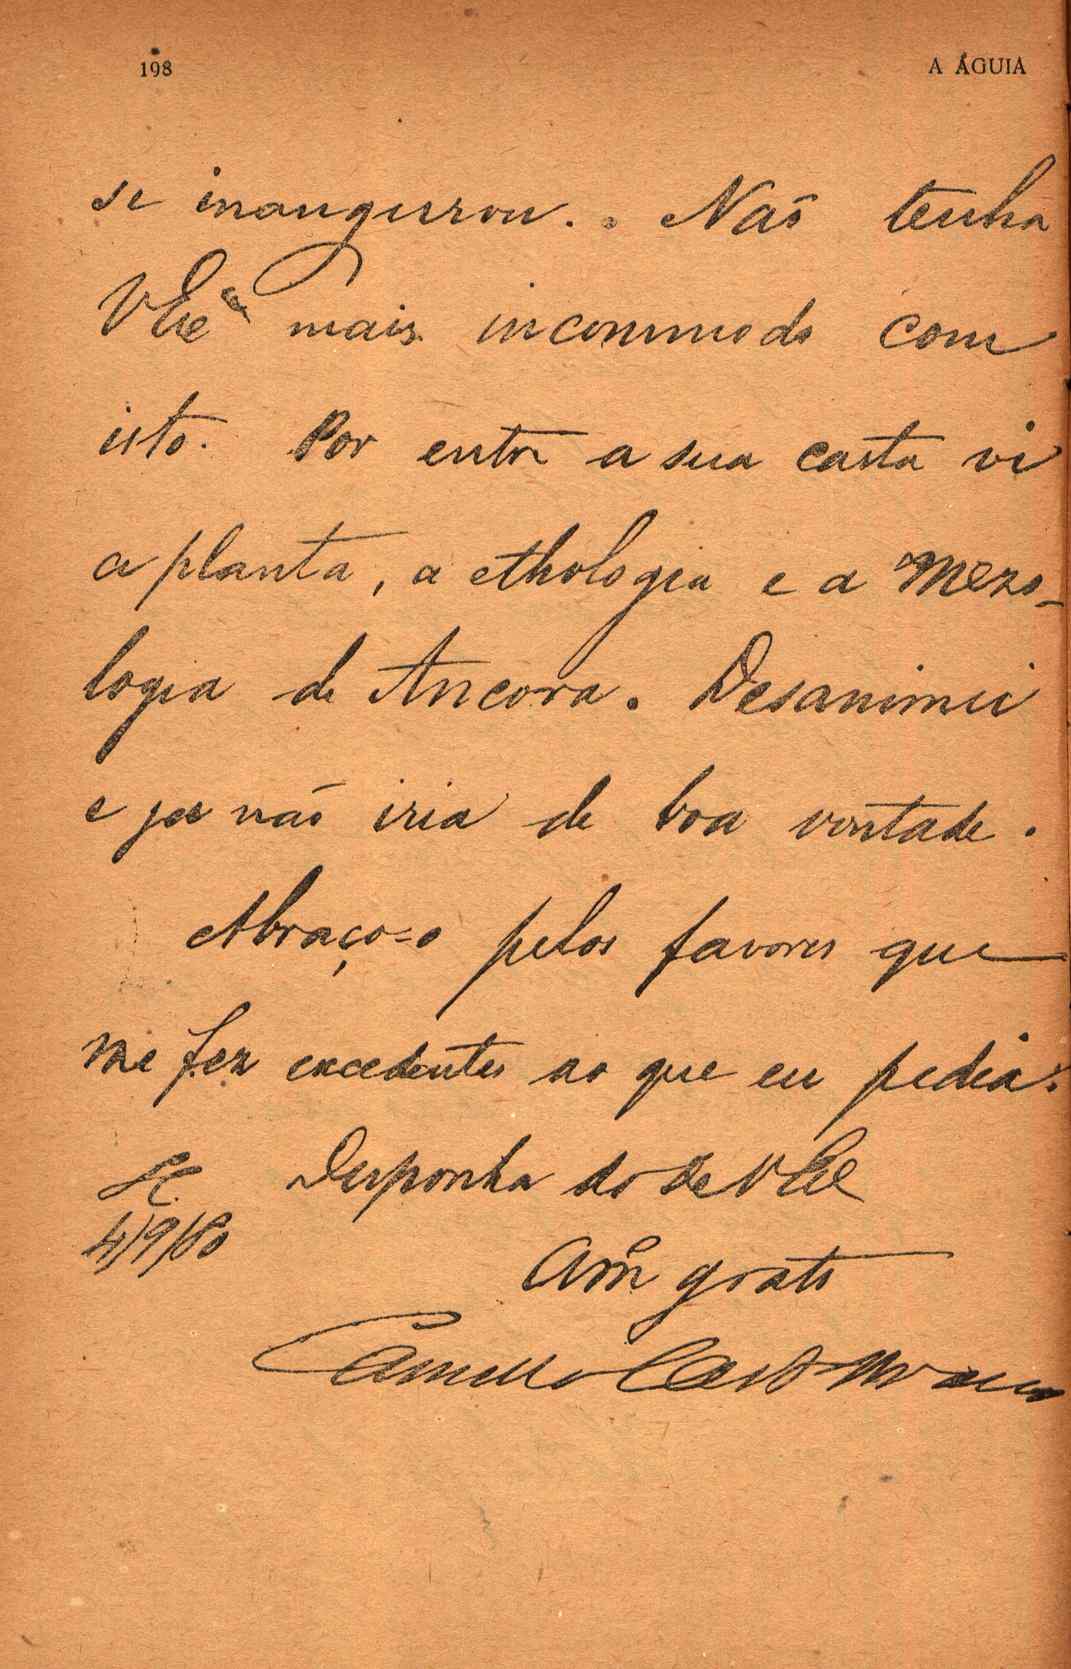 198 A ÁGUIA
se inaugurou. . Não tenha
VExcª mais incommodo com
isto. Por entre a sua carta vi
a planta, a ethologia e a Mezo-
logia de Ancora. Desanimei
e ja não iria de boa vontade.
Abraço-o pelos favores que
me fez excedentes ao que eu pedia.
Disponha do De VExc
4/9/80
Amº grato
Camillo Castello Branco